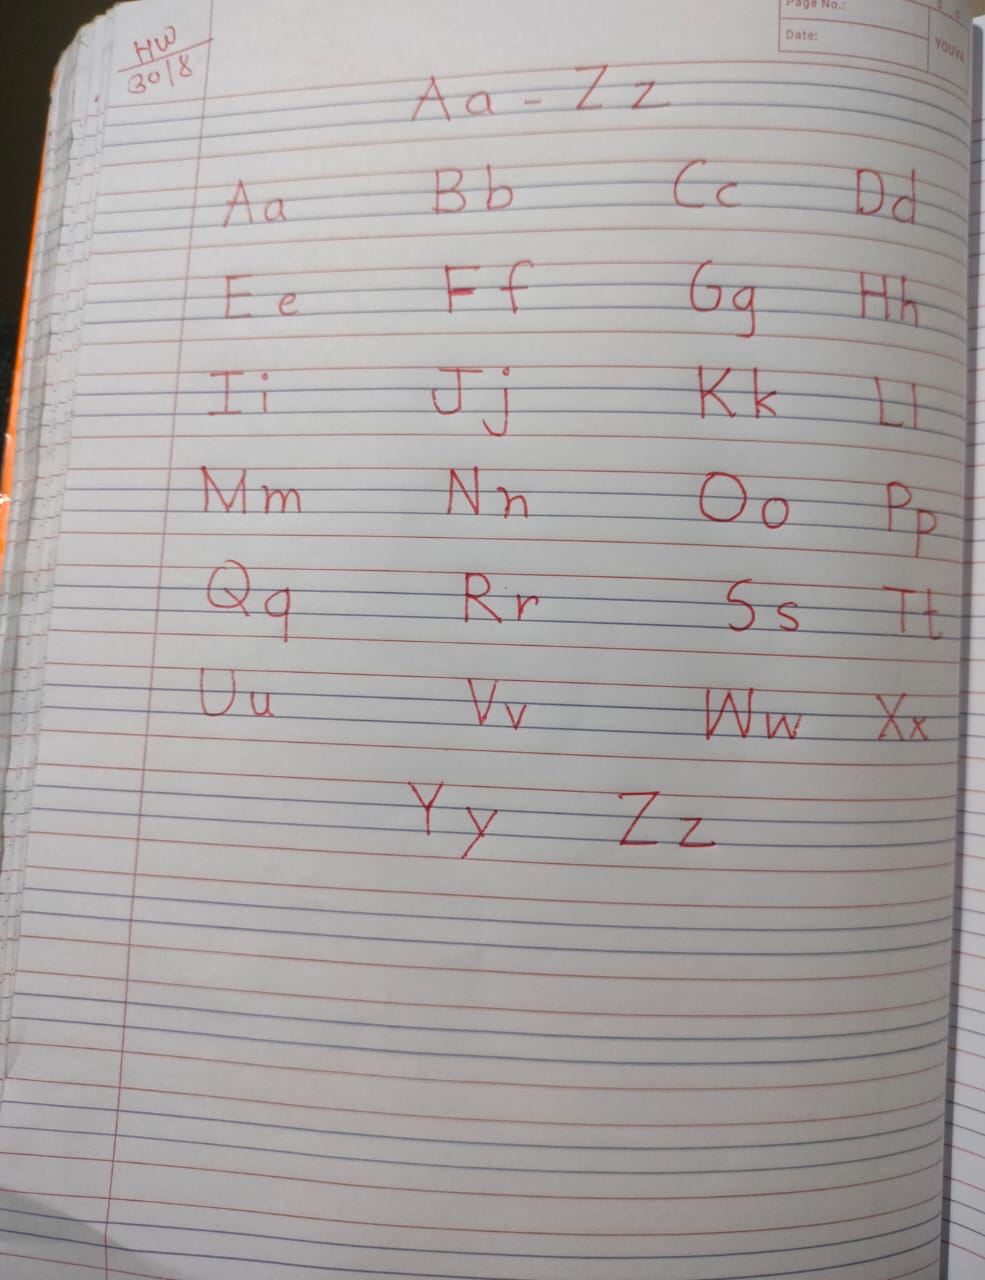 HW
30/8
Page No.:
Date:
YOUVA
Aa - Zz
Aa Bb Cc Dd
Ee Ff Gg Hh
Ii Jj Kk Ll
Mm Nn Oo Pp
Qq Rr Ss Tt
Uu Vv Ww Xx
Yy Zz